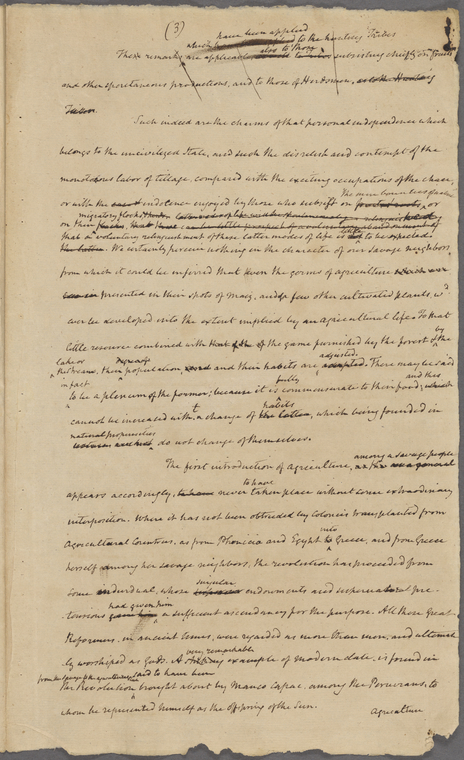 (3)
have been applied
which to the hunting Tribes
These remarks are applicable also to those subsisting chiefly on fruits
and other spontaneous productions, and to those of Herdsmen,
Such indeed are the charms of that personal independence which
belongs to the uncivilized state, and such the disrelish and contempt of the
monotonous labor of tillage, compared with the exciting occupations of the chace,
or with the indolence enjoyed by those who subsist on
or
migratory flocks
on their
that a voluntary relinquishment of these latter modes of life is to be expected.
We certainly perceive nothing in the character of our savage neighbors,
from which it could be inferred that even the germs of agriculture
presented in their spots of maize, and a few other cultivated plants, wd
ever be developed into the extent implied by an agricultural life. To that
little resource combined with the game furnished by the forest & by the
lake or
the stream, their population and their habits are adjusted. There may be said
in fact and this
to be a plenum of the former; because it is fully commensurate to their food;
cannot be increased without a change of habits, which being founded in
natural propensities do not change of themselves.
The first introduction of agriculture, among a savage people,
appears accordingly, to have never taken place without some extraordinary
interposition. Where it has not been obtruded by Colonies transplanted from
agricultural Countries, as from Phoenicia and Egypt into Greece, and from Greece
herself among her savage neighbors, the revolution has proceeded from
some individual, whose singular endowments and supernatural pre-
tensions had given him a sufficient ascendancy for the purpose. All these Great
Reformers, in ancient times, were regarded as more than men, and ultimate-
ly worshiped as Gods. A very remarkable example of modern date, is found in
said to have been
the Revolution brought about by Manco Capac, among the Peruvians, to
whom he represented himself as the offspring of the Sun.
Agriculture